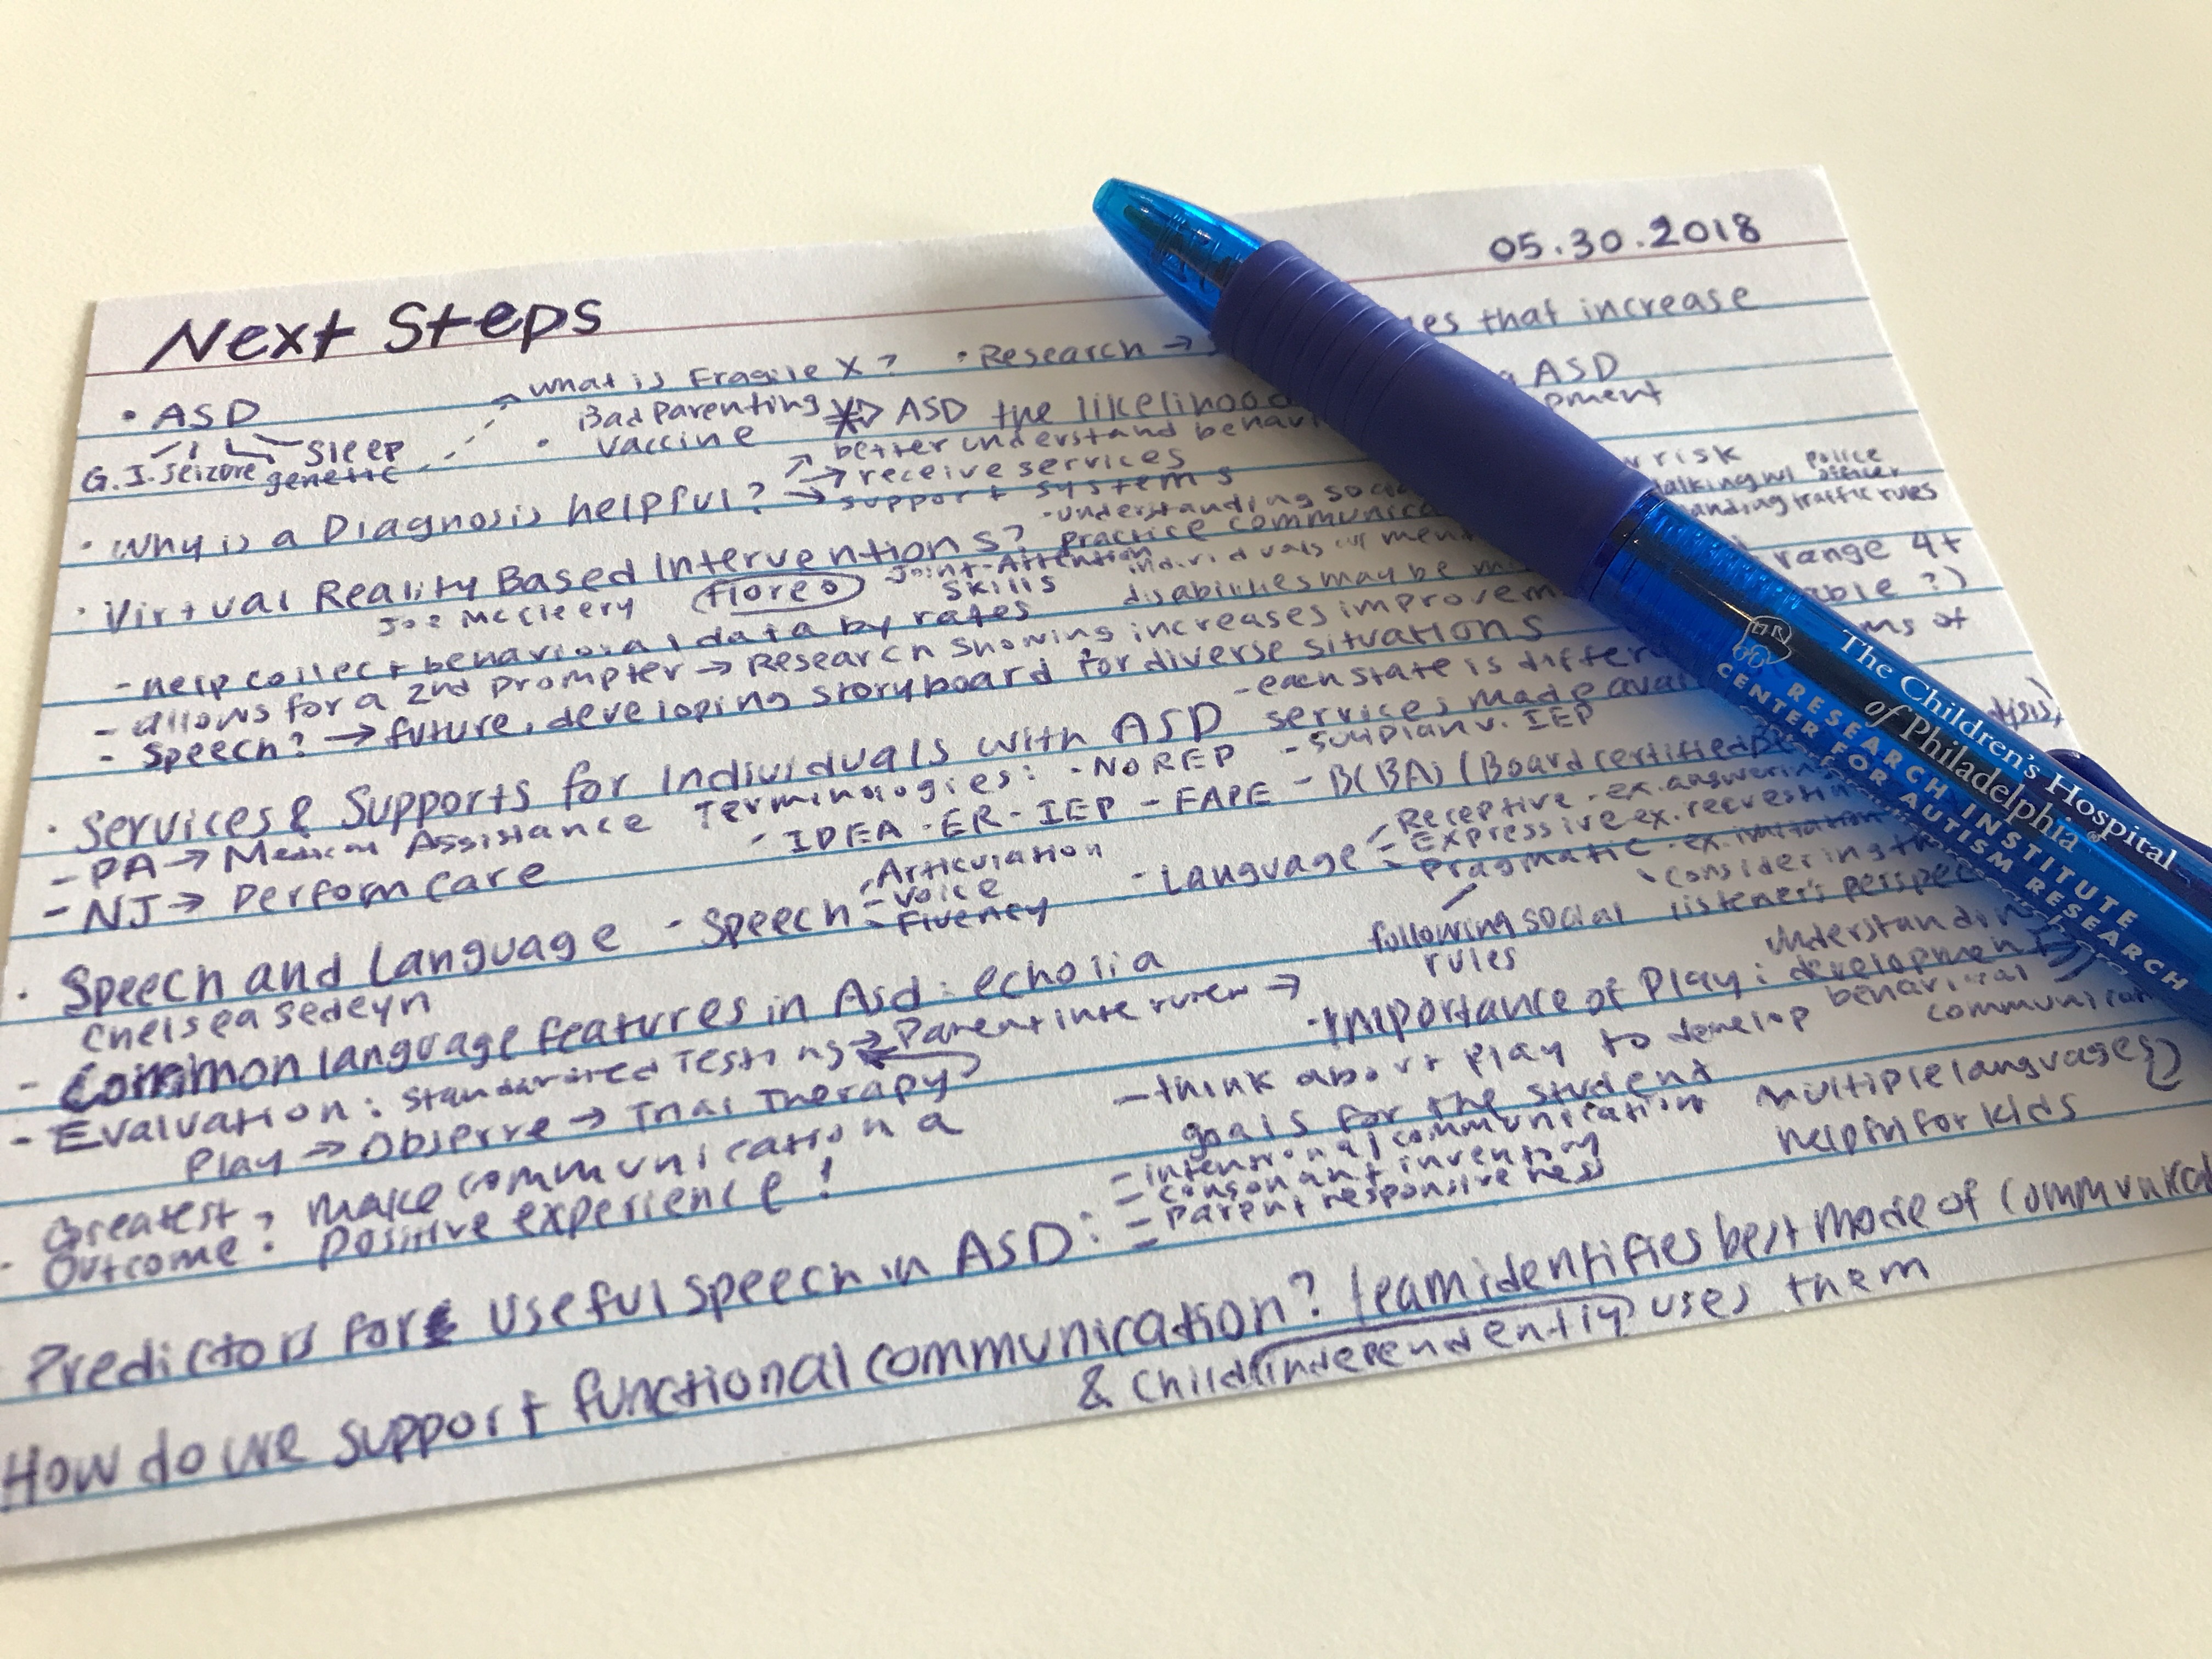 05.30.2018
Next Steps
• ASD
G.I. seizure genetic sleep
what is Fragile X?
• Research → es that increase
the likelihood ASD
• Bad Parenting
vaccine
ASD
opment
• Why is a Diagnosis helpful?
↗ better understand behavi
→ receive services
→ support systems
risk
talking w/ police officer
anding traffic rules
• Virtual Reality Based Interventions?
- understanding soci
practice communica
Joe McCleery
floreo
Joint-Attention skills
individuals w/ men
disabilities may be m
range 4+
able?)
- help collect behavioral data by rates
- allows for a 2nd Prompter → Research showing increases improvem
ms of
- Speech? → future, developing storyboard for diverse situations
• Services & Supports for Individuals with ASD
- each state is differ
services made avai
- PA → Medical Assistance
Terminologies: - NOREP - 504 plan v. IEP
- IDEA - ER - IEP - FAPE - BCBA) (Board certified Be
- NJ → Perform Care
• Speech and Language
- Speech
- Articulation
- Voice
- Fluency
- Language
- Receptive - ex. answerin
- Expressive - ex. requestin
- Pragmatic - ex. imitation
considering th
listener's perspec
following social rules
Chelsea Sedeyn
- Common language features in Asd: echolia
- Evaluation: Standardized Testing → Parent interview →
Play → Observe → Trial Therapy
- Importance of Play: understandin
development
- think about play to develop behavioral
communicat
goals for the student
• Greatest Outcome: make communication a
positive experience!
multiple languages?
helpful for kids
Predictors for useful speech in ASD:
- intentional communication
- consonant inventory
- Parent responsiveness
How do we support functional communication? Team identifies best mode of communicat
& child independently uses them
The Children's Hospital
of Philadelphia®
RESEARCH INSTITUTE
CENTER FOR AUTISM RESEARCH